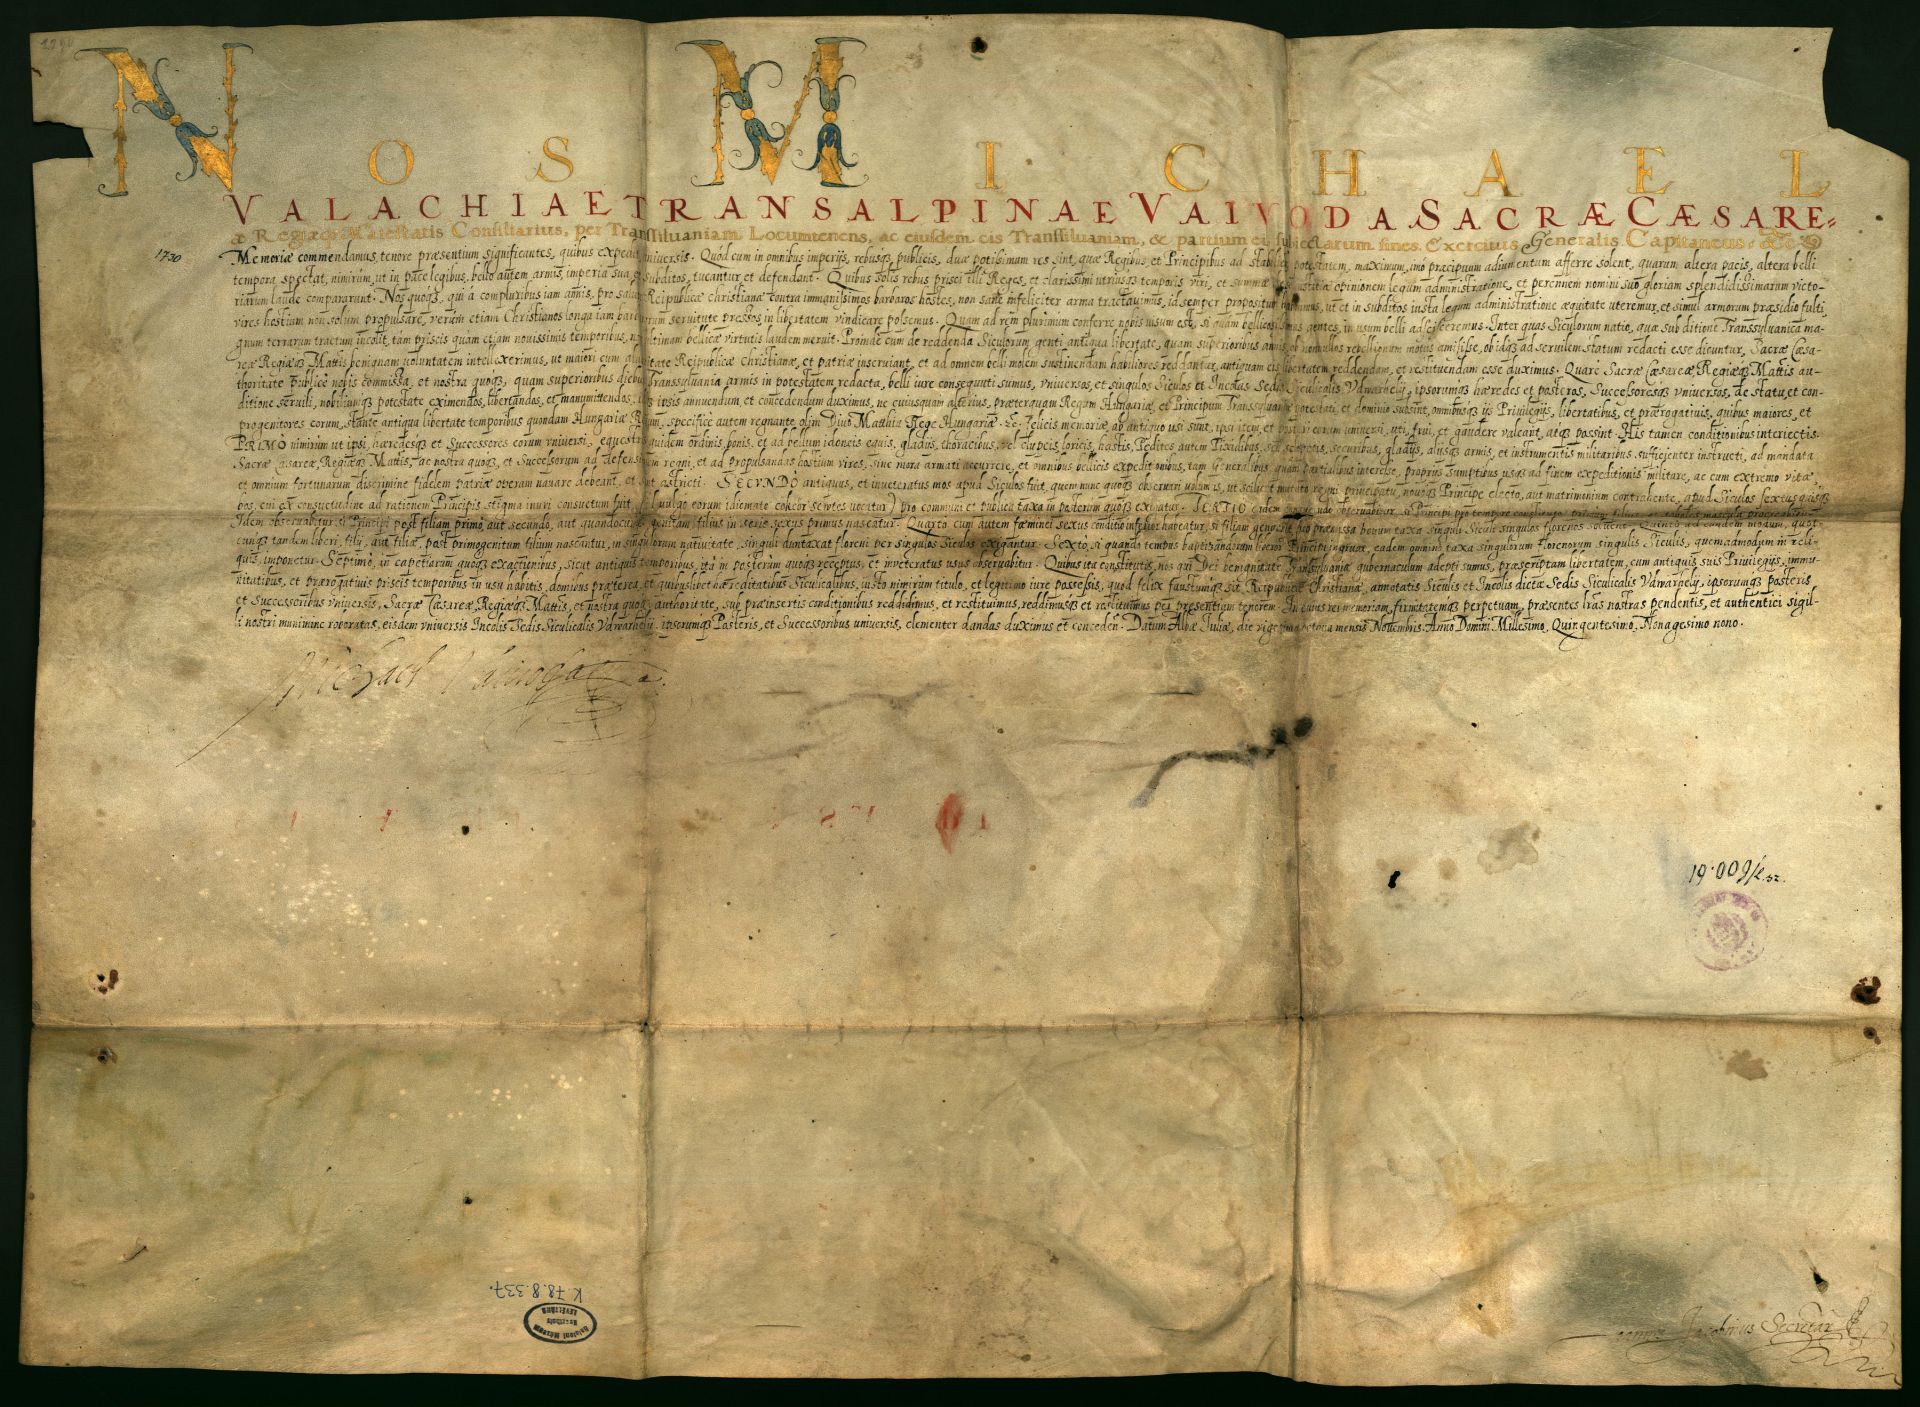 NOS MICHAEL
VALACHIAE TRANSALPINAE VAIVODA SACRÆ CÆSARE=
æ Regiæq; Maiestatis Consiliarius, per Transsiluaniam Locumtenens, ac eiusdem cis Transsiluaniam, & partium ei subiectarum fines Exercitus Generalis Capitaneus &c
1730
Memoriæ commendamus, tenore præsentium significantes, quibus expedit vniuersis. Quòd cum in omnibus imperijs, rebusq; publicis, duæ potissimum res sint, quæ Regibus, et Principibus ad stabilem potestatem, maximum, imò præcipuum adiumentum afferre solent, quarum altera pacis, altera belli
tempora spectat, nimirum, ut in pace legibus, bello autem armis, imperia sua, subditos, tueantur et defendant. Quibus solis rebus prisci illi Reges, et clarissimi utriusq; temporis viri, et summæ opinionem legum administratione, et perennem nomini suo gloriam splendidissimarum victo-
riarum laude compararunt. Nos quoq;, qui à compluribus iam annis, pro salute Reipublicæ christianæ contra immanissimos barbaros hostes, non sanè infeliciter arma tractauimus, id semper propositum habuimus, ut et in subditos iusta legum administratione æquitate uteremur, et simul armorum præsidio fulti
vires hostium non solùm propulsare, verùm etiam Christianos longa iam barbarorum seruitute pressos, in libertatem vindicare possemus. Quam ad rem plurimùm conferre nobis uisum est, si quàm bellicosissimas gentes, in usum belli adscisceremus. Inter quas Siculorum natio, quæ sub ditione Transsyluanica ma-
gnum terrarum tractum incolit, tam priscis quam etiam nouissimis temporibus, non ultimam bellicæ virtutis laudem meruit. Proinde cum de reddenda Siculorum genti antiqua libertate, quam superioribus annis, ob nonnullos rebellionum motus amisisse, ob idq; ad seruilem statum redacti esse dicuntur, Sacræ Cæsa-
reæ Regiæq; Mattis benignam voluntatem intellexerimus, ut maiori cum Reipublicæ Christianæ, et patriæ inseruiant, et ad omnem belli molem sustinendam habiliores reddantur, antiquam eis libertatem reddendam, et restituendam esse duximus. Quare Sacræ Cæsareæ Regiæq; Mattis au-
thoritate publicè nobis commissa, et nostra quoq;, quam superioribus diebus Transyluania armis in potestatem redacta, belli iure consequuti sumus, vniuersos, et singulos Siculos et Incolas Sedis Siculicalis Vdwarhely, ipsorumq; hæredes et posteros, Successoresq; vniuersos, de statu et con-
ditione seruili, nobiliumq; potestate eximendos, libertandos, et manumittendos, ipsis annuendum, et concedendum duximus, ne cuiusquam alterius, præterquam Regum Hungariæ, et Principum Transsyluaniæ potestati, et dominio subsint, omnibusq; ijs Priuilegijs, libertatibus, et prærogatiuis, quibus maiores, et
progenitores eorum, stante antiqua libertate temporibus quondam Hungariæ Regum, specificè autem regnante olim Diuo Matthia Rege Hungariæ &c. felicis memoriæ, ab antiquo usi sunt, ipsi item, et posteri eorum uniuersi, uti, frui, et gaudere valeant, atq; possint. His tamen conditionibus interiectis.
PRIMÒ nimirum ut ipsi, hæredesq; et Successores eorum vniuersi, equestris quidem ordinis, bonis, et ad bellum idoneis equis, gladijs, thoracibus, vel clypeis, loricis, hastis, Pedites autem Pixidibus, seu sclopetis, securibus, gladijs, alijsq; armis, et instrumentis militaribus sufficienter instructi, ad mandata
Sacræ Cæsareæ, Regiæq; Mattis, ac nostra quoq;, et Successorum ad defensionem regni, et ad propulsandas hostium vires, sine mora armati occurrere, et omnibus bellicis expeditionibus, tam Generalibus quàm partialibus interesse, proprijs sumptibus usq; ad finem expeditionis militare, ac cum extremo vitæ
et omnium fortunarum discrimine fidelem patriæ operam nauare debeant, et sint astricti. SECVNDÒ antiquus, et inueteratus mos apud Siculos fuit, quem nunc quoq; obseruari volumus, ut scilicet mutato regni principatu, nouoq; Principe electo, aut matrimonium contrahente, apud Siculos sextus quisq;
bos, ei ex consuetudine ad rationem Principis stigma inuri consuetum fuit, (vulgò eorum idiomate vocatur) pro communi et publica taxa in posterum quoq; exigatur. TERTIÒ
Idem obseruabitur, si Principi post filiam primò, aut secundò, aut quandocunq; genitam filius in serie sexus primus nascatur. Quarto cum autem fœminei sexus conditio inferior habeatur, si filiam generet pro præmissa boum taxa singuli Siculi singulos florenos soluent. Quintò ad eundem modum, quot-
cunq; tandem liberi, filij, aut filiæ, post primogenitum filium nascantur, in singulorum natiuitate, singuli duntaxat floreni per singulos Siculos exigantur. Sextò, si quando tempus baptizandorum liberorum Principi ingruat, eadem omnino taxa singulorum florenorum singulis Siculis, quemadmodum in reli-
quis, imponetur. Septimò, in capetiarum quoq; exactionibus, sicut antiquis temporibus, ita in posterum quoq; receptus, et inueteratus usus obseruabitur. Quibus ita constitutis, nos qui Dei benignitate Transyluaniæ gubernaculum adepti sumus, præscriptam libertatem, cum antiquis suis Priuilegijs, immu-
nitatibus, et prærogatiuis priscis temporibus in usu habitis, domibus præterea, et quibuslibet hæreditatibus Siculicalibus, iusto nimirum titulo, et legitimo iure possessis, quod felix faustumq; sit Reipublicæ Christianæ, annotatis Siculis et Incolis dictæ Sedis Siculicalis Vdwarhely, ipsorumq; posteris
et Successoribus vniuersis, Sacræ Cæsareæ, Regiæq; Mattis, et nostra quoq; authoritate, sub præinsertis conditionibus reddidimus, et restituimus, reddimusq; et restituimus per præsentium tenorem. In cuius rei memoriam, firmitatemq; perpetuam, præsentes lras nostras pendentis, et authentici sigil-
li nostri munimine roboratas, eisdem vniuersis Incolis Sedis Siculicalis Vdwarhely, ipsorumq; Posteris, et Successoribus uniuersis, clementer dandas duximus et conceden. Datum Albæ Iuliæ, die vigesima octaua mensis Nouembris. Anno Domini Millesimo, Quingentesimo, Nonagesimo nono.
Michael Vaiuoda
K 78.8.337.
Jacobinus Secretar